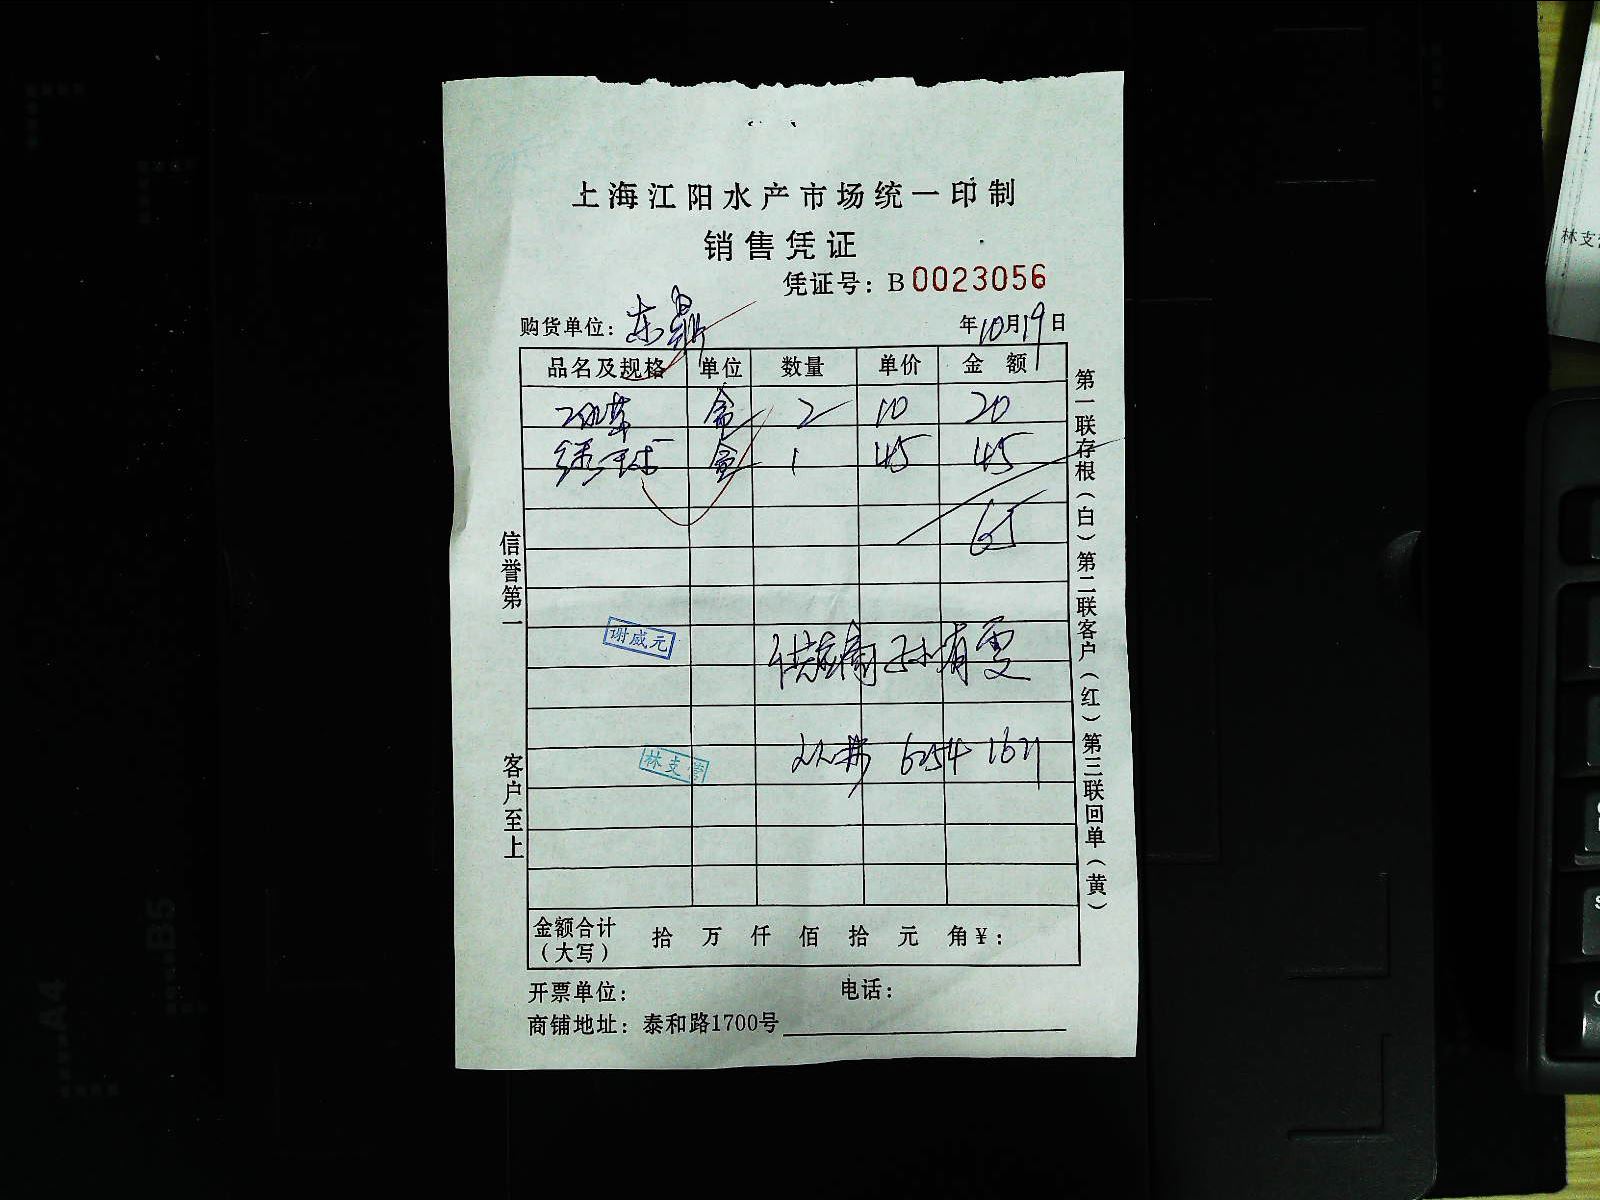 上海江阳水产市场统一印制
销售凭证
凭证号：B0023056
购货单位：东鼎 年10月19日
品名及规格 单位 数量 单价 金额
盒 2 10 20
盒 1 45 45
65
谢威元
林支营
6254 1671
金额合计（大写） 拾 万 仟 佰 拾 元 角 ¥：
开票单位： 电话：
商铺地址：泰和路1700号
信誉第一 客户至上
第一联存根（白） 第二联客户（红） 第三联回单（黄）
林支
A4
B5